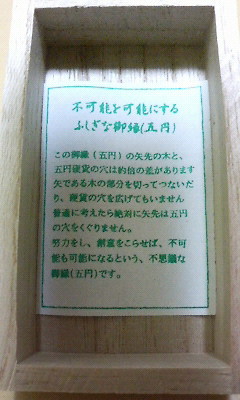 不可能を可能にする
ふしぎな御縁(五円)
この御縁(五円)の矢先の木と、
五円硬貨の穴は約倍の差があります
矢である木の部分を切ってつないだ
り、硬貨の穴を広げてもいません
普通に考えたら絶対に矢先は五円
の穴をくぐりません。
努力をし、創意をこらせば、不可
能も可能になるという、不思議な
御縁(五円)です。